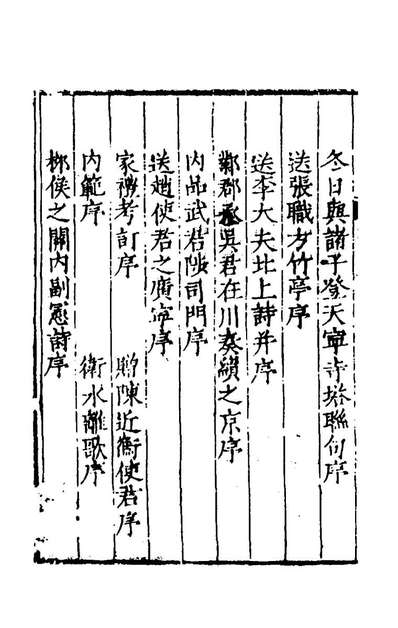 冬日與諸子登天寧寺塔聯句序
送張職方竹亭序
送李大夫北上詩并序
鄰郡丞吳君在川奏績之京序
內品武君陟司門序
送趙使君之廣寧序
家禮考訂序
贈陳近衡使君序
內範序
衛水離歌序
柳侯之關內副憲詩序